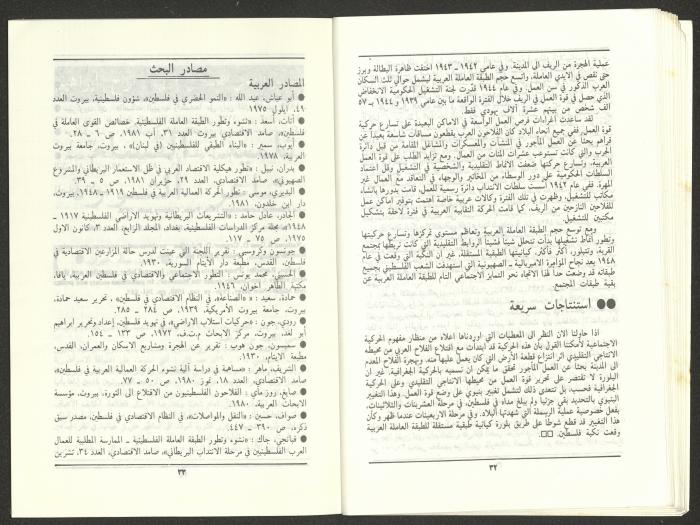 عملية الهجرة من الريف الى المدينة. وفي عامي ١٩٤٢ ـ ١٩٤٣ اختفت ظاهرة البطالة وبرز
حتى نقص في الايدي العاملة، واتسع حجم الطبقة العاملة العربية ليشمل حوالي ثلث السكان
العرب الذكور في سن العمل. وفي عام ١٩٤٤ قدرت لجنة التشغيل الحكومية الانخفاض
الذي حصل في قوة العمل في الريف خلال الفترة الواقعة ما بين عامي ١٩٣٩ و١٩٤٤ بـ ٥٧
الف شخص من بينهم عشرة آلاف يهودي فقط.
لقد ساعدت اغراءات فرص العمل الواسعة في الاماكن البعيدة على تسارع حركية
قوة العمل، ففي جميع انحاء البلاد كان الفلاحون العرب يقطعون مسافات شاسعة بعيداً عن
قراهم بحثاً عن العمل المأجور في المنشآت والمعسكرات والمشاغل المقامة من قبل دائرة
الحرب والتي كانت تستوعب عشرات المئات من العمال. ومع تزايد الطلب على قوة العمل
العربية، وتسارع حركتها ضعفت الأنماط التقليدية والشخصية في التشغيل وقل اعتماد
السلطات الحكومية على دور الوسطاء من المخاتير والوجهاء في التعاقد مع العمال غير
المهرة. ففي عام ١٩٤٢ أسست سلطات الانتداب دائرة رسمية للعمل، قامت بدورها بانشاء
مكاتب للتشغيل، وظهرت في تلك الفترة وكالات عربية خاصة اهتمت بتوفير اماكن عمل
للفلاحين النازحين من الريف، كما قامت الحركة النقابية العربية في فترة لاحقة بتشكيل
مكتبين للتشغيل.
ومع توسع حجم الطبقة العاملة العربية وتعاظم مستوى تمركزها وتسارع حركيتها
وتطور أنماط تشغيلها بدأت تنحل شيئاً فشيئاً الروابط التقليدية التي كانت تربطها بمجتمع
القرية، وتتبلور، أكثر فأكثر، كيانيتها الطبقية المستقلة، غير أن النكبة التي وقعت في عام
١٩٤٨ بعد نجاح المؤامرة الامبريالية ـ الصهيونية التي استهدفت الشعب الفلسطيني بجميع
طبقاته قد وضعت حداً لهذا الاتجاه نحو التمايز الاجتماعي التام للطبقة العاملة العربية عن
بقية طبقات المجتمع.
●● استنتاجات سريعة
اذا حاولنا الان النظر الى المعطيات التي اوردناها اعلاه من منظار مفهوم الحركية
الاجتماعية لأمكننا القول بأن هذه الحركية قد ابتدأت مع اقتلاع الفلاح العربي من محيطه
الانتاجي التقليدي اثر انتزاع قطعة الأرض التي كان يعمل عليها منه، وبهجرة الفلاح المعدم
الى المدينة بحثاً عن العمل المأجور تحقق ما يمكن ان نسميه بالحركية الجغرافية. غير ان
البلورة لا تقتصر على تحرير قوة العمل من محيطها الانتاجي التقليدي وعلى الحركية
الجغرافية فحسب، بل تتعدى ذلك لتشمل تغيير بنيوي على وضع قوة العمل. وهذا التغيير
البنيوي بالتحديد بقي جزئياً ولم يبلغ مداه في فلسطين، في مرحلة العشرينات والثلاثينات،
بفعل خصوصية عملية الرسملة التي شهدتها البلاد. وفي مرحلة الاربعينات عندما ظهر وكأن
هذا التغيير قد قطع شوطاً على طريق بلورة كيانية طبقية مستقلة للطبقة العاملة العربية
وقعت نكبة فلسطين. □□
٣٢
مصادر البحث
المصادر العربية
● أبو عياش، عبد الله : «النمو الحضري في فلسطين»، شؤون فلسطينية، بيروت العدد
٤٩، ايلول ١٩٧٥.
● أتات، أسعد : «نشوء وتطور الطبقة العاملة الفلسطينية، خصائص القوى العاملة في
فلسطين»، صامد الاقتصادي، بيروت العدد ٣١، آب ١٩٨١، ص ٦ ـ ٢٨.
● أيوب، سمير : «البناء الطبقي للفلسطينيين (في لبنان)» ، بيروت، جامعة بيروت
العربية، ١٩٧٨.
● بدران، نبيل : «تطور هيكلية الاقتصاد العربي في ظل الاستعمار البريطاني والمشروع
الصهيوني»، صامد الاقتصادي، العدد ٢٩، حزيران ١٩٨١، ص ٥ ـ ٣٩.
● البديري، موسى : «تطور الحركة العمالية العربية في فلسطين ١٩١٩ ـ ١٩٤٨، بيروت،
دار ابن خلدون، ١٩٨١.
● الجادر، عادل حامد : «التشريعات البريطانية وتهويد الاراضي الفلسطينية ١٩١٧ ـ
١٩٤٨»، مجلة مركز الدراسات الفلسطينية، بغداد، المجلد الرابع، العدد ٣، كانون الاول
١٩٧٥، ص ٧٥ ـ ١١٧.
● جونسون وكروسبي : تقرير اللجنة التي عينت لدرس حالة المزارعين الاقتصادية في
فلسطين، القدس، مطبعة دار الأيتام السورية، ١٩٣٠.
● الحسيني، محمد يونس : التطور الاجتماعي والاقتصادي في فلسطين العربية، يافا،
مكتبة الطاهر اخوان، ١٩٤٦.
● حمادة، سعيد : «الصناعة»، في النظام الاقتصادي في فلسطين، تحرير سعيد حمادة،
بيروت، جامعة بيروت الأمريكية، ١٩٣٩، ص ٢٨٤ ـ ٢٨٥.
● رودي، جون : «حركيات استلاب الاراضي»، في تهويد فلسطين، إعداد وتحرير ابراهيم
أبو لغد، بيروت، مركز الابحاث م.ت.ف، ١٩٧٢، ص ١٣٣ ـ ١٥٤.
● سمبسون، جون هوب : تقرير عن الهجرة ومشاريع الاسكان والعمران، القدس،
مطبعة الايتام، ١٩٣٠.
● الشريف، ماهر : «مساهمة في دراسة آلية نشوء الحركة العمالية العربية في فلسطين»،
صامد الاقتصادي، العدد ١٨، تموز ١٩٨٠، ص ٥٠ ـ ٧٧.
● صايغ، روز ماي : الفلاحون الفلسطينيون من الاقتلاع الى الثورة، بيروت، مؤسسة
الابحاث العربية، ١٩٨٠.
● صواف، حسين : «النقل والمواصلات»، في النظام الاقتصادي في فلسطين، مصدر سبق
ذكره، ص ٣٩٠ ـ ٤٤٧.
● قبانجي، جاك : «نشوء وتطور الطبقة العاملة الفلسطينية ـ الممارسة المطلبية للعمال
العرب الفلسطينيين في مرحلة الانتداب البريطاني»، صامد الاقتصادي، العدد ٣٤، تشرين
٣٣